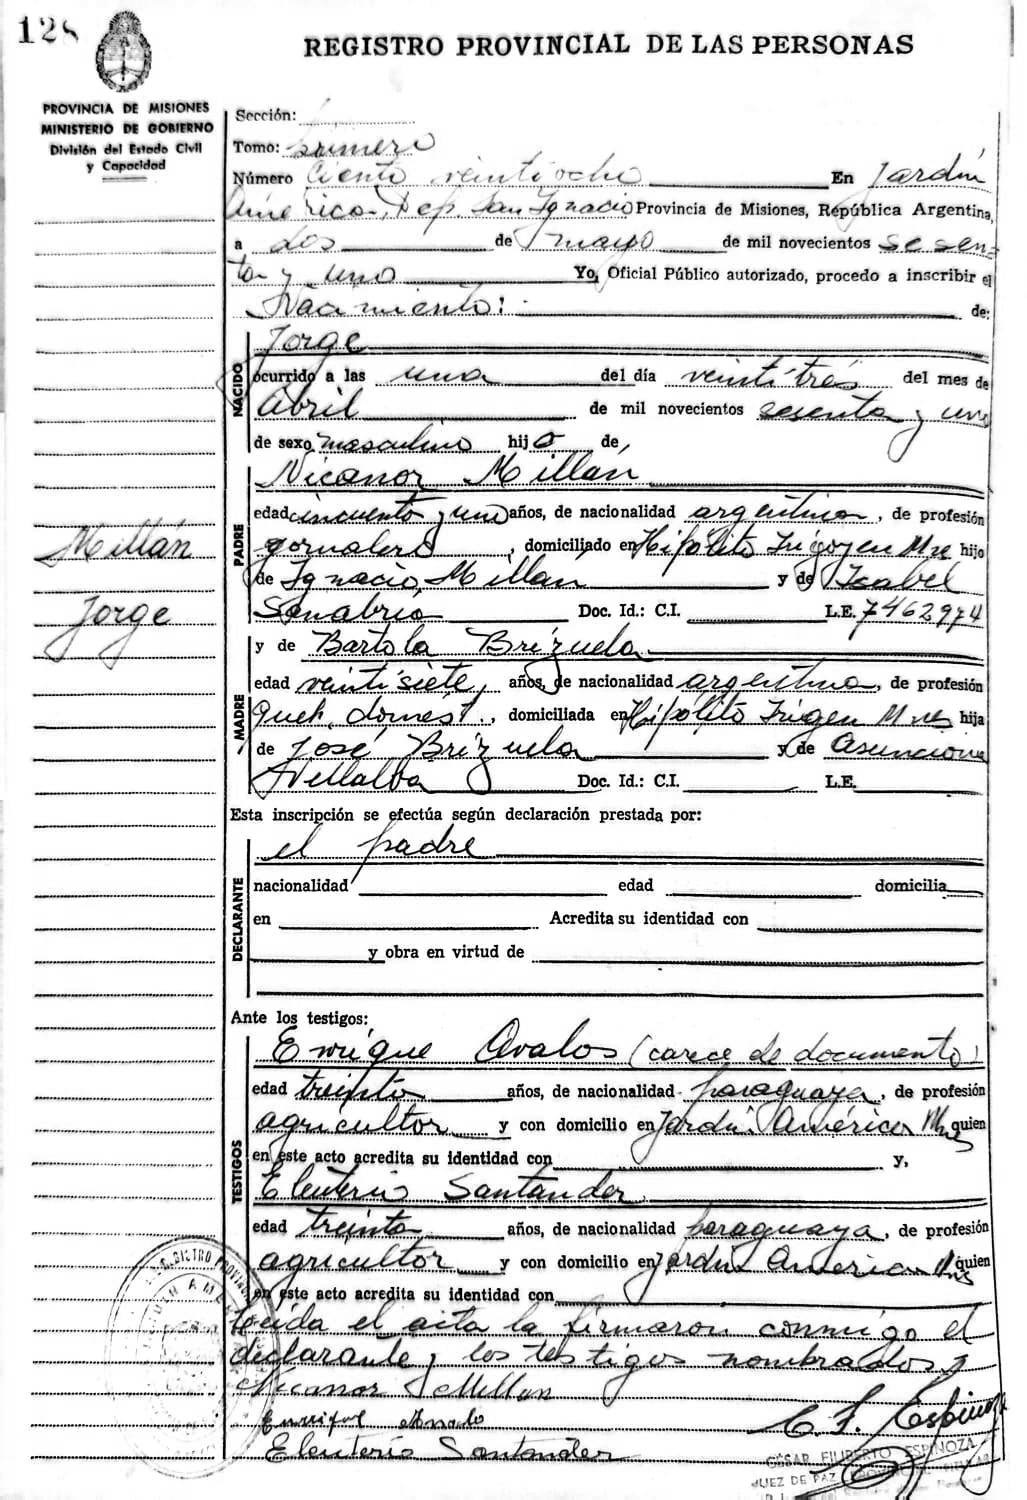 128
REGISTRO PROVINCIAL DE LAS PERSONAS
PROVINCIA DE MISIONES
MINISTERIO DE GOBIERNO
División del Estado Civil
y Capacidad
Sección:
Tomo: primero
Número Ciento veintiocho En Jardín
América, Dep. San Ignacio Provincia de Misiones, República Argentina,
a dos de mayo de mil novecientos sesen-
ta y uno Yo, Oficial Público autorizado, procedo a inscribir el
Nacimiento: de:
Jorge
NACIDO
ocurrido a las una del día veintitrés del mes de
Abril de mil novecientos sesenta y uno
de sexo masculino hijo de,
Nicanor Millán
PADRE
edad cincuenta y uno años, de nacionalidad argentina, de profesión
jornalero, domiciliado en Hipólito Irigoyen Mnes hijo
de Ignacio Millán y de Isabel
Sanabria Doc. Id.: C.I. L.E. 7462974
Millán
Jorge
y de Bartola Brízuela
MADRE
edad veintisiete, años, de nacionalidad argentina, de profesión
queh. domést., domiciliada en Hipólito Irigen Mnes hija
de José Brízuela y de Asunciona
Villalba Doc. Id.: C.I. L.E.
Esta inscripción se efectúa según declaración prestada por:
el padre
DECLARANTE
nacionalidad edad domicilia
en Acredita su identidad con
y obra en virtud de
Ante los testigos:
Enrique Avalos (carece de documento)
TESTIGOS
edad treinta años, de nacionalidad paraguaya, de profesión
agricultor y con domicilio en Jardín América Mnes quien
en este acto acredita su identidad con y,
Eleuterio Santander
edad treinta años, de nacionalidad paraguaya, de profesión
agricultor y con domicilio en Jardín America Mns quien
en este acto acredita su identidad con
Leída el acta la firmaron conmigo el
declarante y los testigos nombrados
Nicanor Millan
Eleuterio Santander
C. F. Espinoza
CESAR FILIBERTO ESPINOZA
JUEZ DE PAZ